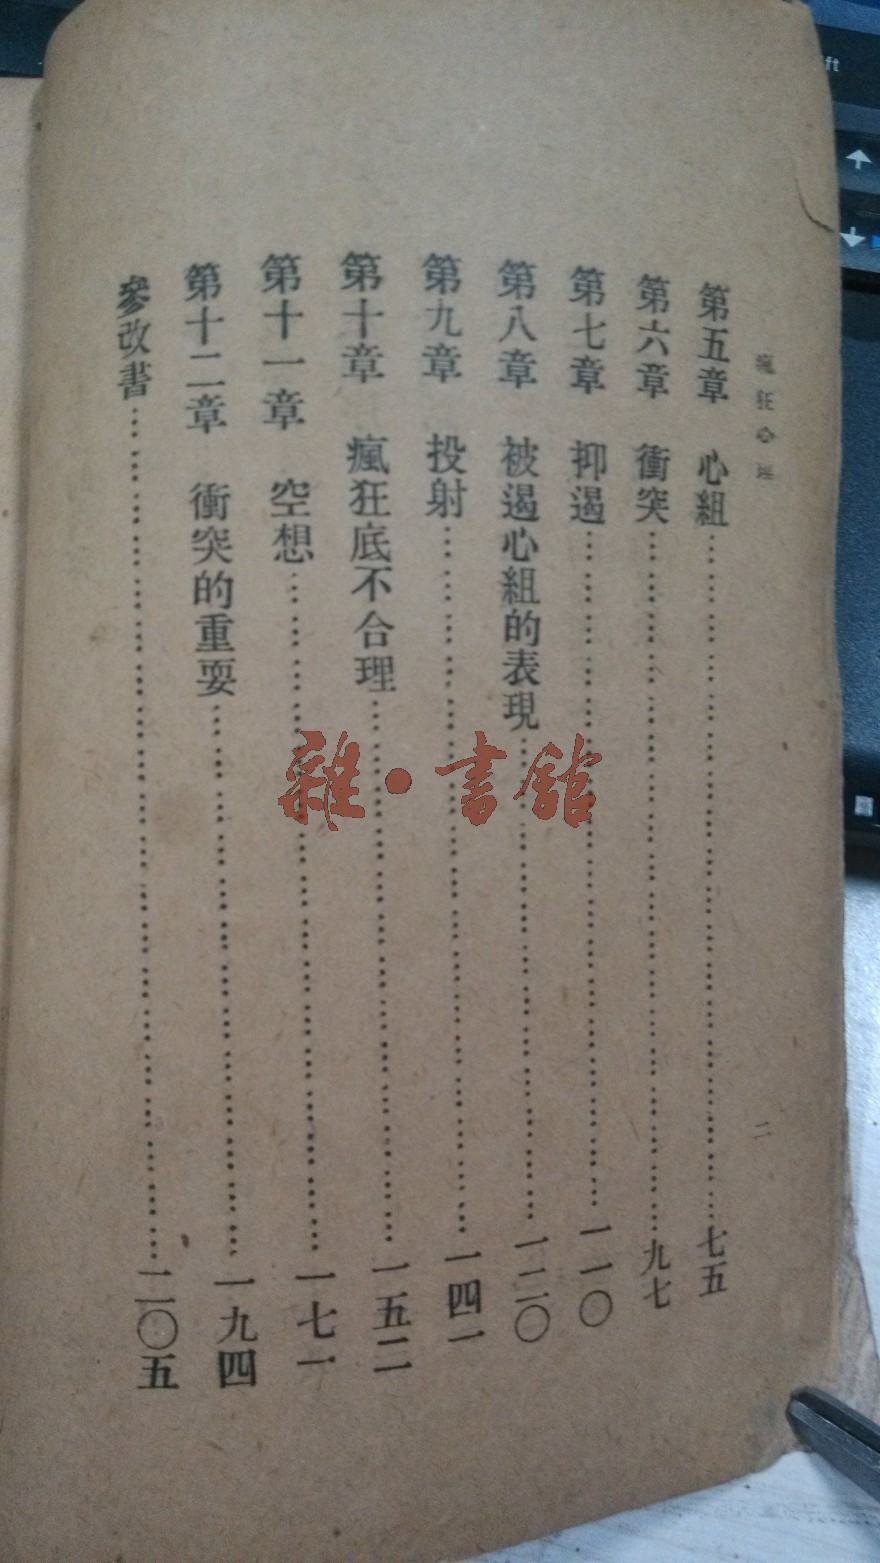 瘋狂心理
二
第五章 心組……七五
第六章 衝突……九七
第七章 抑遏……一一〇
第八章 被遏心組的表現……一二〇
第九章 投射……一四一
第十章 瘋狂底不合理……一五二
第十一章 空想……一七一
第十二章 衝突的重要……一九四
參攷書……二〇五
雜·書館
ft